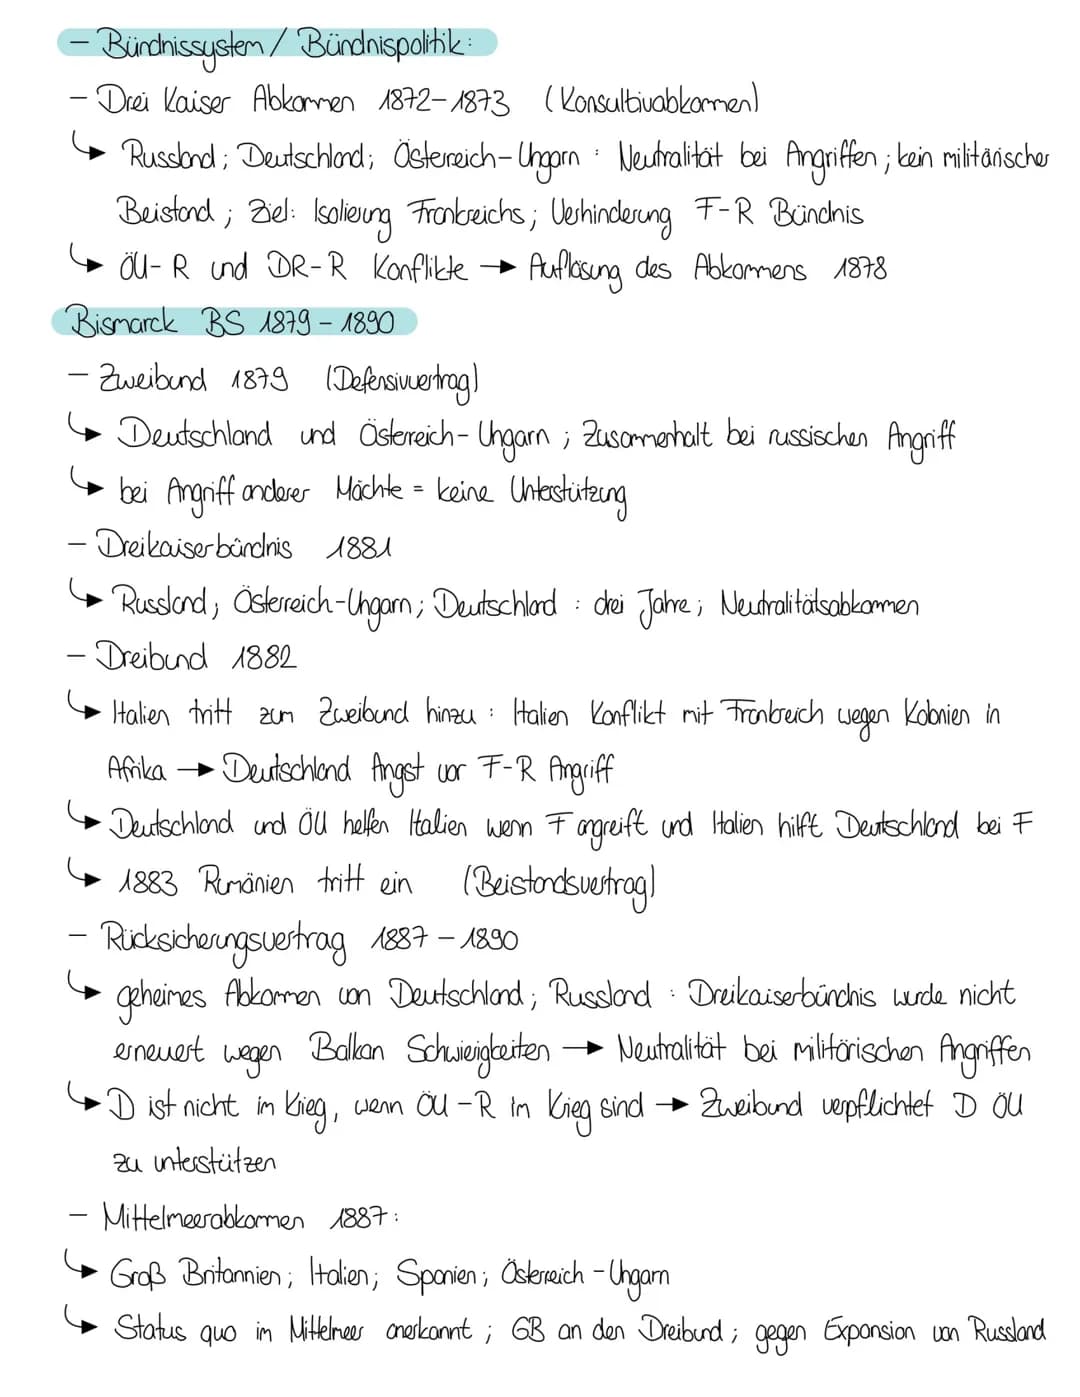 - Bündnissystem / Bündnispolitik:
- Drei Kaiser Abkommen 1872-1873 (Konsultivabkommen)
↳ Russland; Deutschland; Österreich-Ungarn : Neutralität bei Angriffen; kein militärischer
Beistand; Ziel: Isolierung Frankreichs; Verhinderung F-R Bündnis
↳ ÖU-R und DR-R Konflikte → Auflösung des Abkommens 1878
Bismarck BS 1879-1890
- Zweibund 1879 (Defensivvertrag)
↳ Deutschland und Österreich-Ungarn; Zusammenhalt bei russischen Angriff
↳ bei Angriff anderer Mächte = keine Unterstützung
- Dreikaiserbündnis 1881
↳ Russland; Österreich-Ungarn; Deutschland : drei Jahre; Neutralitätsabkommen
- Dreibund 1882
↳ Italien tritt zum Zweibund hinzu : Italien Konflikt mit Frankreich wegen Kolonien in
Afrika → Deutschland Angst vor F-R Angriff
↳ Deutschland und ÖU helfen Italien wenn F angreift und Italien hilft Deutschland bei F
↳ 1883 Rumänien tritt ein (Beistandsvertrag)
- Rücksicherungsvertrag 1887-1890
↳ geheimes Abkommen von Deutschland; Russland : Dreikaiserbündnis wurde nicht
erneuert wegen Balkan Schwierigkeiten → Neutralität bei militärischen Angriffen
↳ D ist nicht im Krieg, wenn ÖU-R im Krieg sind → Zweibund verpflichtet D ÖU
zu unterstützen
- Mittelmeerabkommen 1887:
↳ Groß Britannien; Italien; Spanien; Österreich-Ungarn
↳ Status quo im Mittelmeer anerkannt; GB an den Dreibund; gegen Expansion von Russland